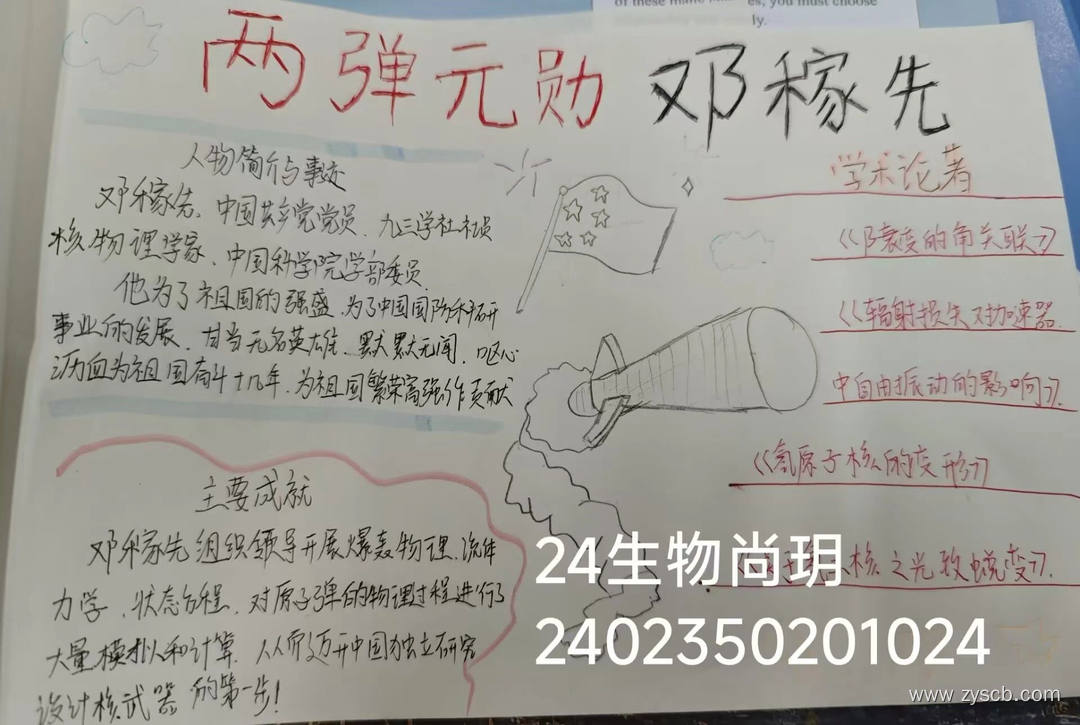 of these
es, you must choose
ly.
两弹元勋 邓稼先
人物简介与事迹
邓稼先、中国共产党党员、九三学社社员
核物理学家、中国科学院学部委员
他为了祖国的强盛、为了中国国防科研
事业的发展、甘当无名英雄、默默无闻、呕心
沥血为祖国奋斗十几年、为祖国繁荣富强作贡献
主要成就
邓稼先组织领导开展爆轰物理、流体
力学、状态方程、对原子弹的物理过程进行了
大量模拟和计算、从而迈开中国独立研究
设计核武器的第一步!
学术论著
《β衰变的角关联》
《辐射损失对加速器
中自由振动的影响》
《氢原子核的变形》
核之光致蜕变》
24生物尚玥
2402350201024
www.zyscb.com